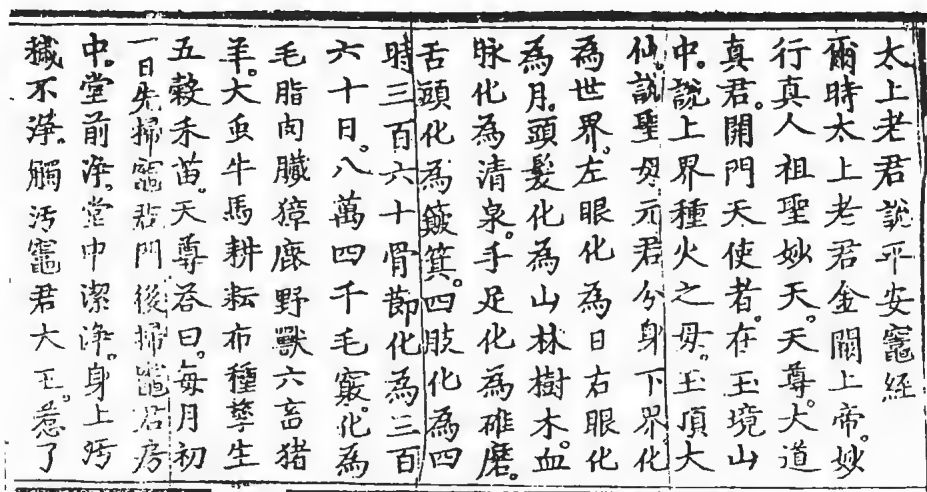 太上老君說平安竈経
爾時太上老君金闕上帝。妙
行真人祖聖妙天。天尊。大道
真君。開門天使者。在玉境山
中。說上界種火之母。玉頂大
仙。說聖母元君分身下界。化
為世界。左眼化為日右眼化
為月。頭髮化為山林樹木。血
脉化為清泉。手足化為碓磨。
舌頭化為簸箕。四肢化為四
時三百六十骨節化為三百
六十日。八萬四千毛竅。化為
毛脂肉臟獐麈野獸六畜猪
羊。大虫牛馬耕耘布種孳生
五榖禾苗。天尊答曰。每月初
一日先掃竈君門後掃竈君房
中。堂前净。堂中潔净。身上污
穢不净。觸污竈君大王。惹了